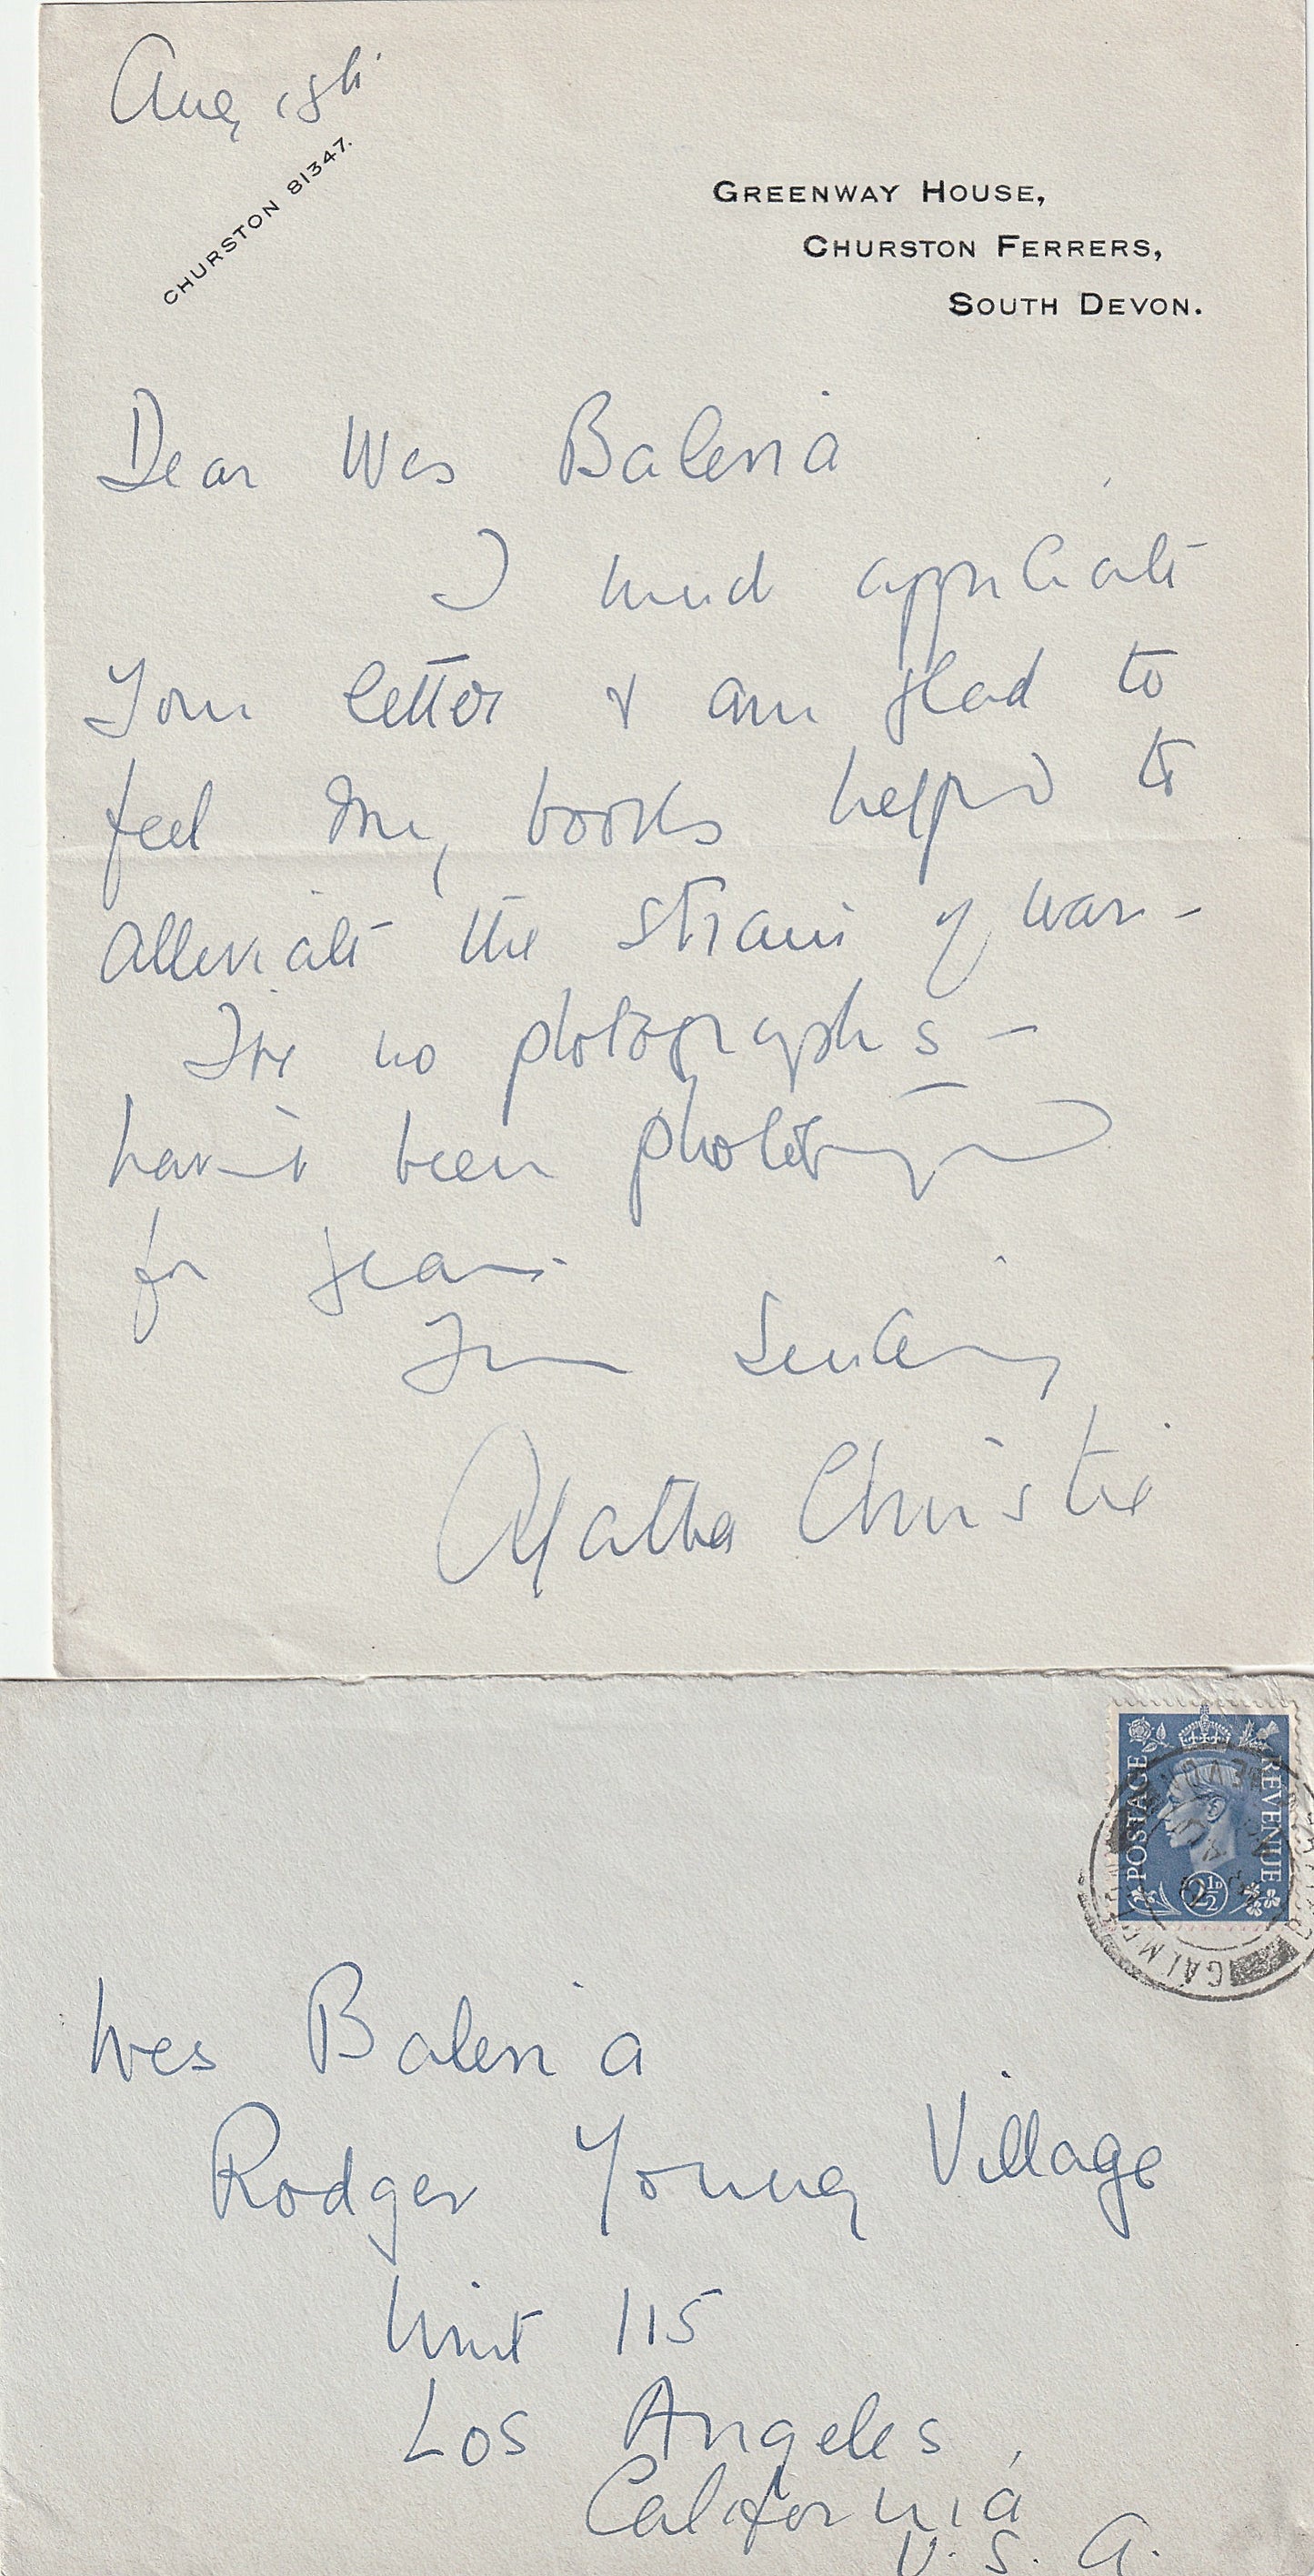 Aug 18th.
CHURSTON 81347.
GREENWAY HOUSE,
CHURSTON FERRERS,
SOUTH DEVON.
Dear Wes Baleria
I much appreciate
your letter & am glad to
feel my books helped to
alleviate the strain of war -
I've no photographs -
haven't been photographed
for years.
Yours Sincerely
Agatha Christie
POSTAGE REVENUE
2½D
GALMPTON
DEVON
Wes Baleria
Rodger Young Village
Unit 115
Los Angeles,
California
U.S.A.